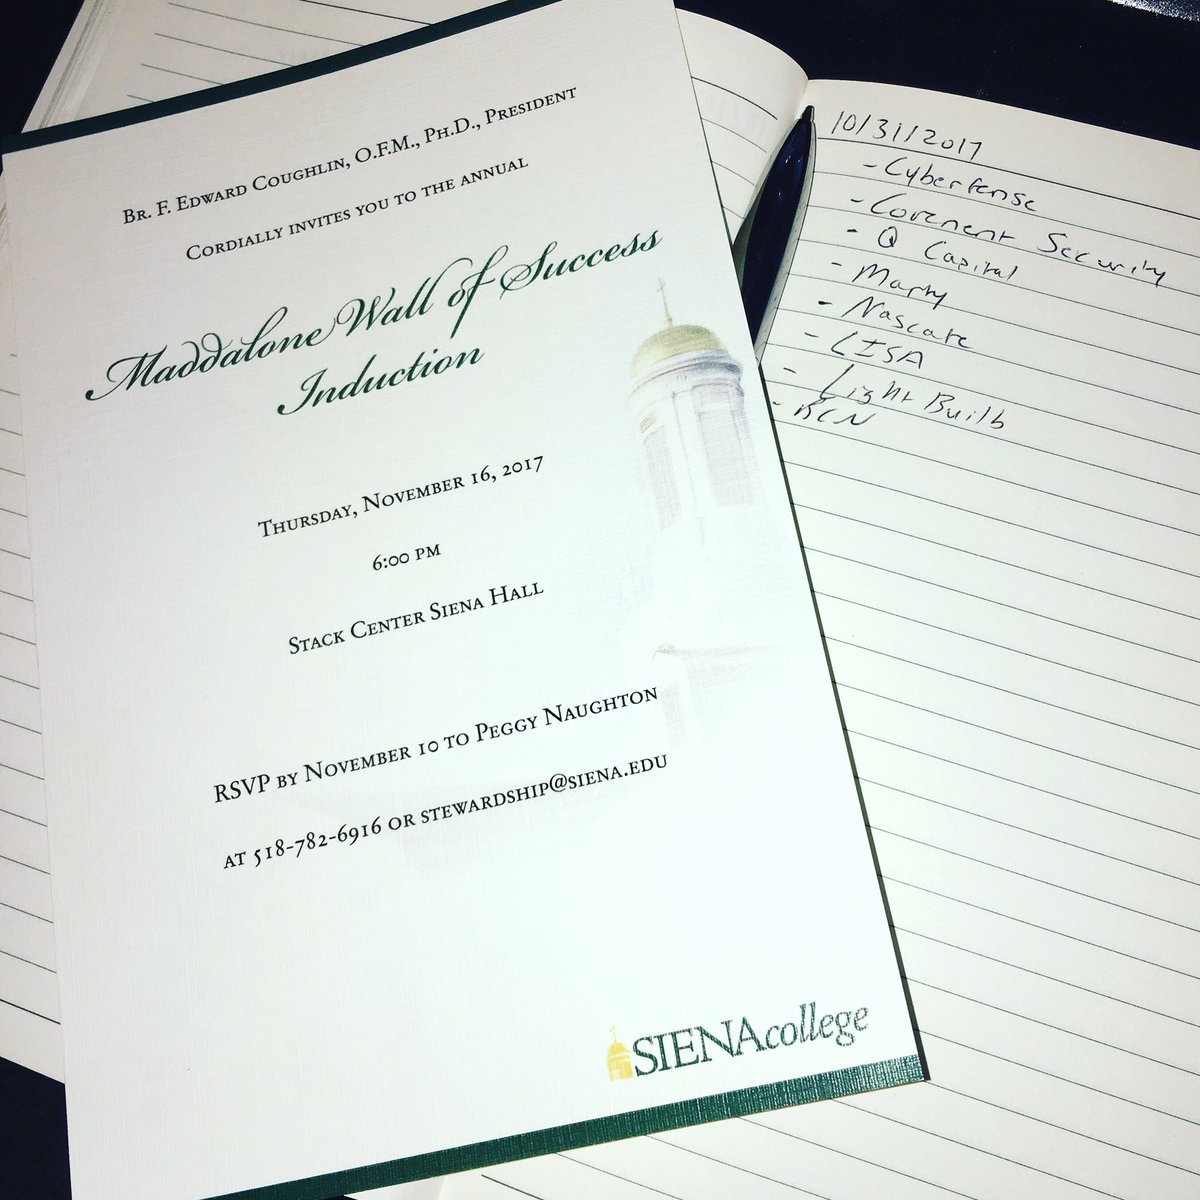 Br. F. Edward Coughlin, O.F.M., Ph.D., President
Cordially invites you to the annual
Maddalone Wall of Success
Induction
Thursday, November 16, 2017
6:00 pm
Stack Center Siena Hall
RSVP by November 10 to Peggy Naughton
at 518-782-6916 or stewardship@siena.edu
SIENAcollege
10/31/2017
- Cyberfense
- Covenent Security
- Q Capital
- Marty
- Nascate
- LISA
- Light Builb
- BCN